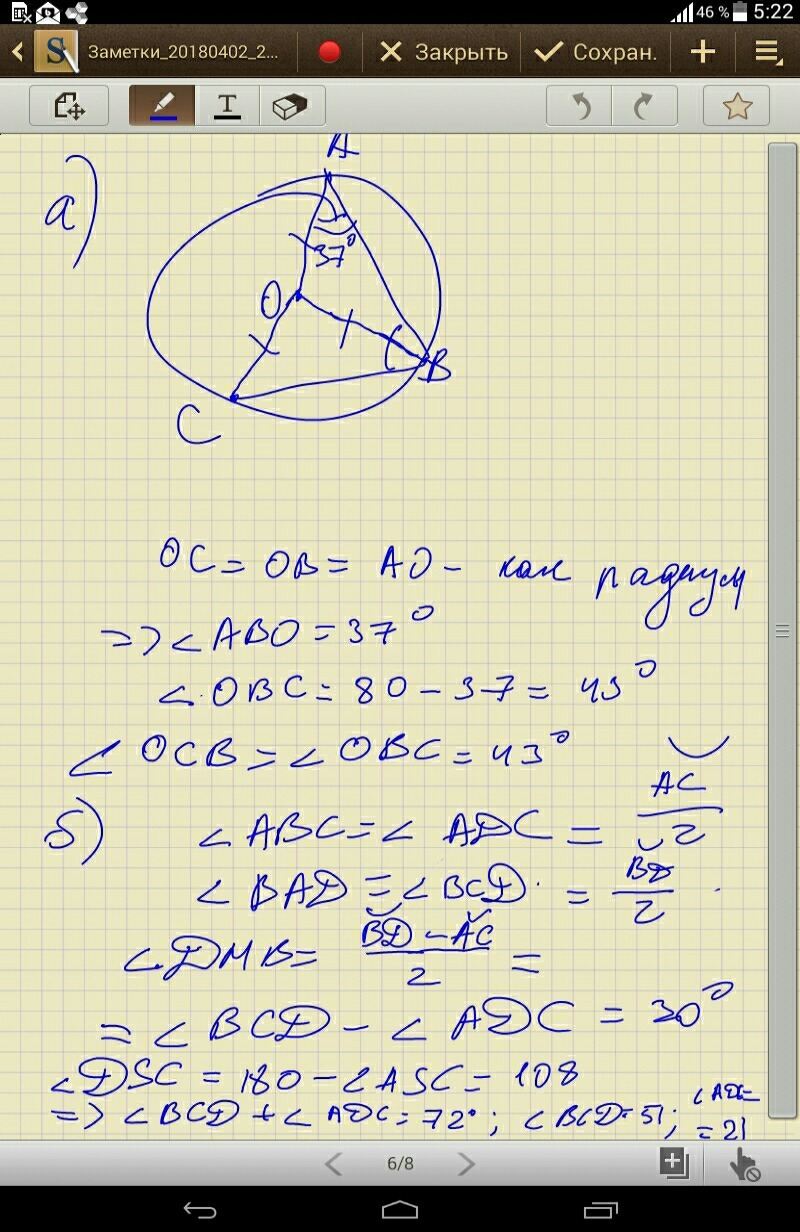 46 % 5:22
Заметки_20180402_2... Закрыть Сохран.
T
а)
A
37°
O
B
C
OC = OB = AO - как радиум
=> ∠ ABO = 37°
∠ OBC = 80 - 37 = 43°
∠ OCB = ∠ OBC = 43°
б) ∠ ABC = ∠ ADC = ◡AC/2
∠ BAD = ∠ BCD = ◡BD/2
∠ DMB = (◡BD - ◡AC)/2 =
= ∠ BCD - ∠ ADC = 30°
∠ DSC = 180 - ∠ ASC = 108
=> ∠ BCD + ∠ ADC = 72°; ∠ BCD = 51; ∠ ADC = 21
6/8